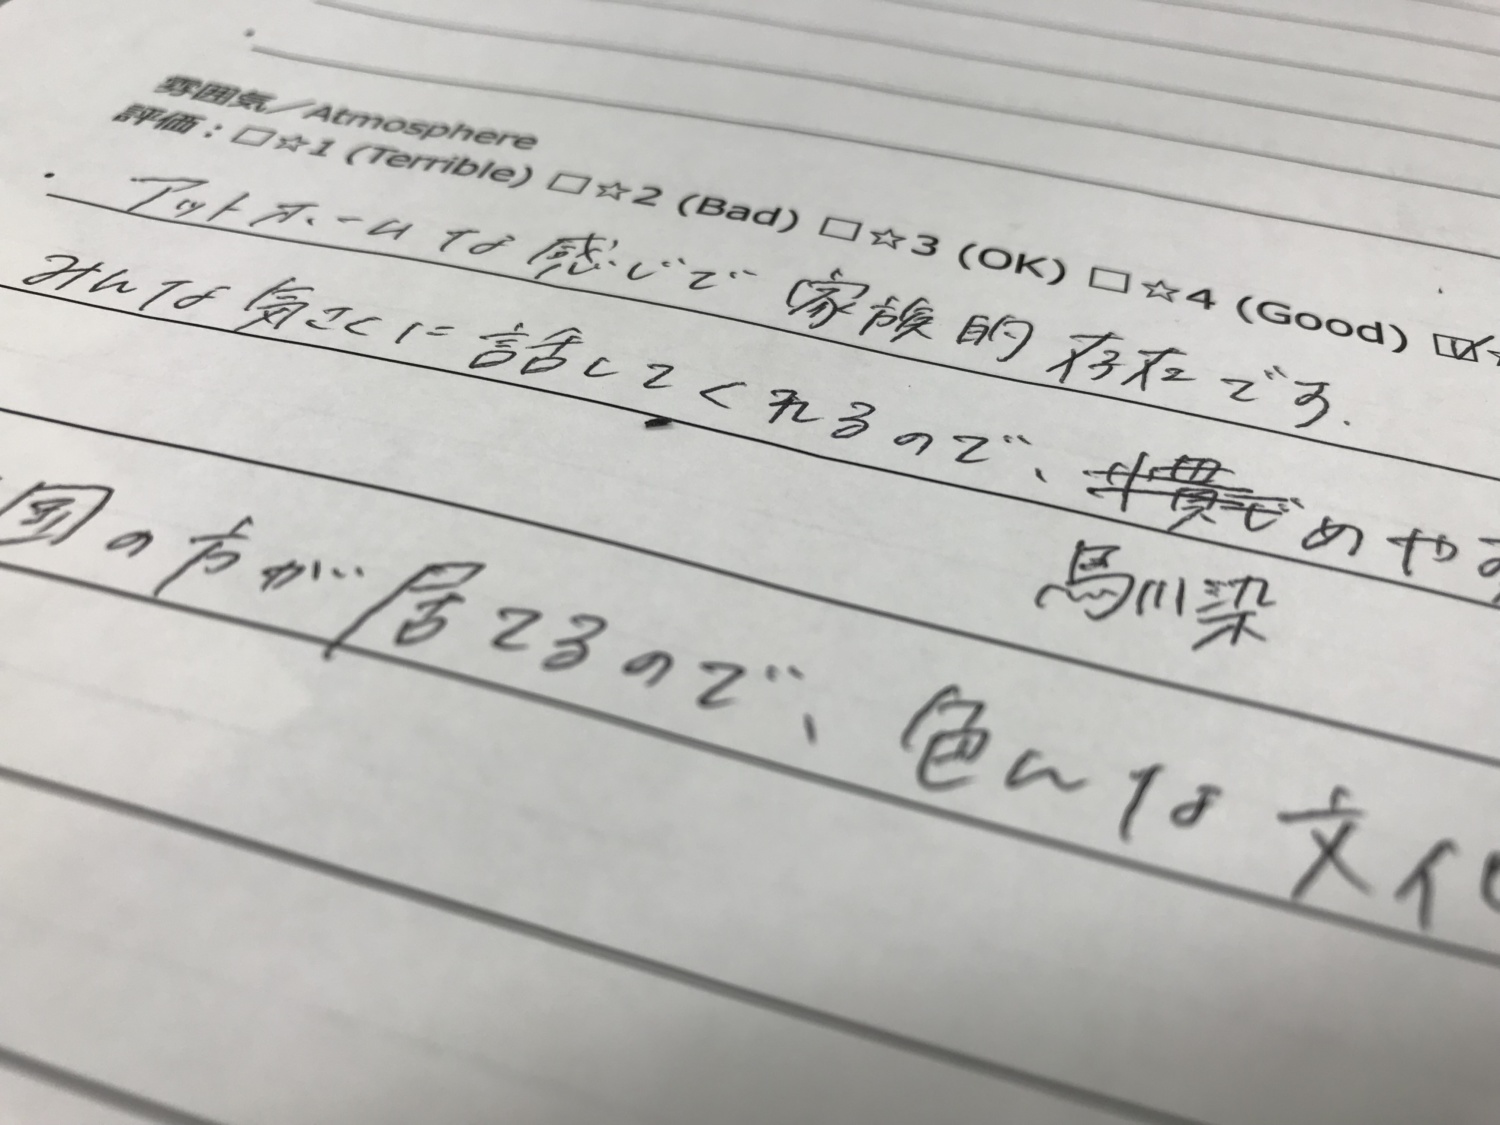 雰囲気／Atmosphere
評価：□☆1 (Terrible) □☆2 (Bad) □☆3 (OK) □☆4 (Good) ☑
アットホームな感じで 家族的存在です.
みんな気さくに話してくれるので、めや
馴染
国の方が居てるので、色んな文化